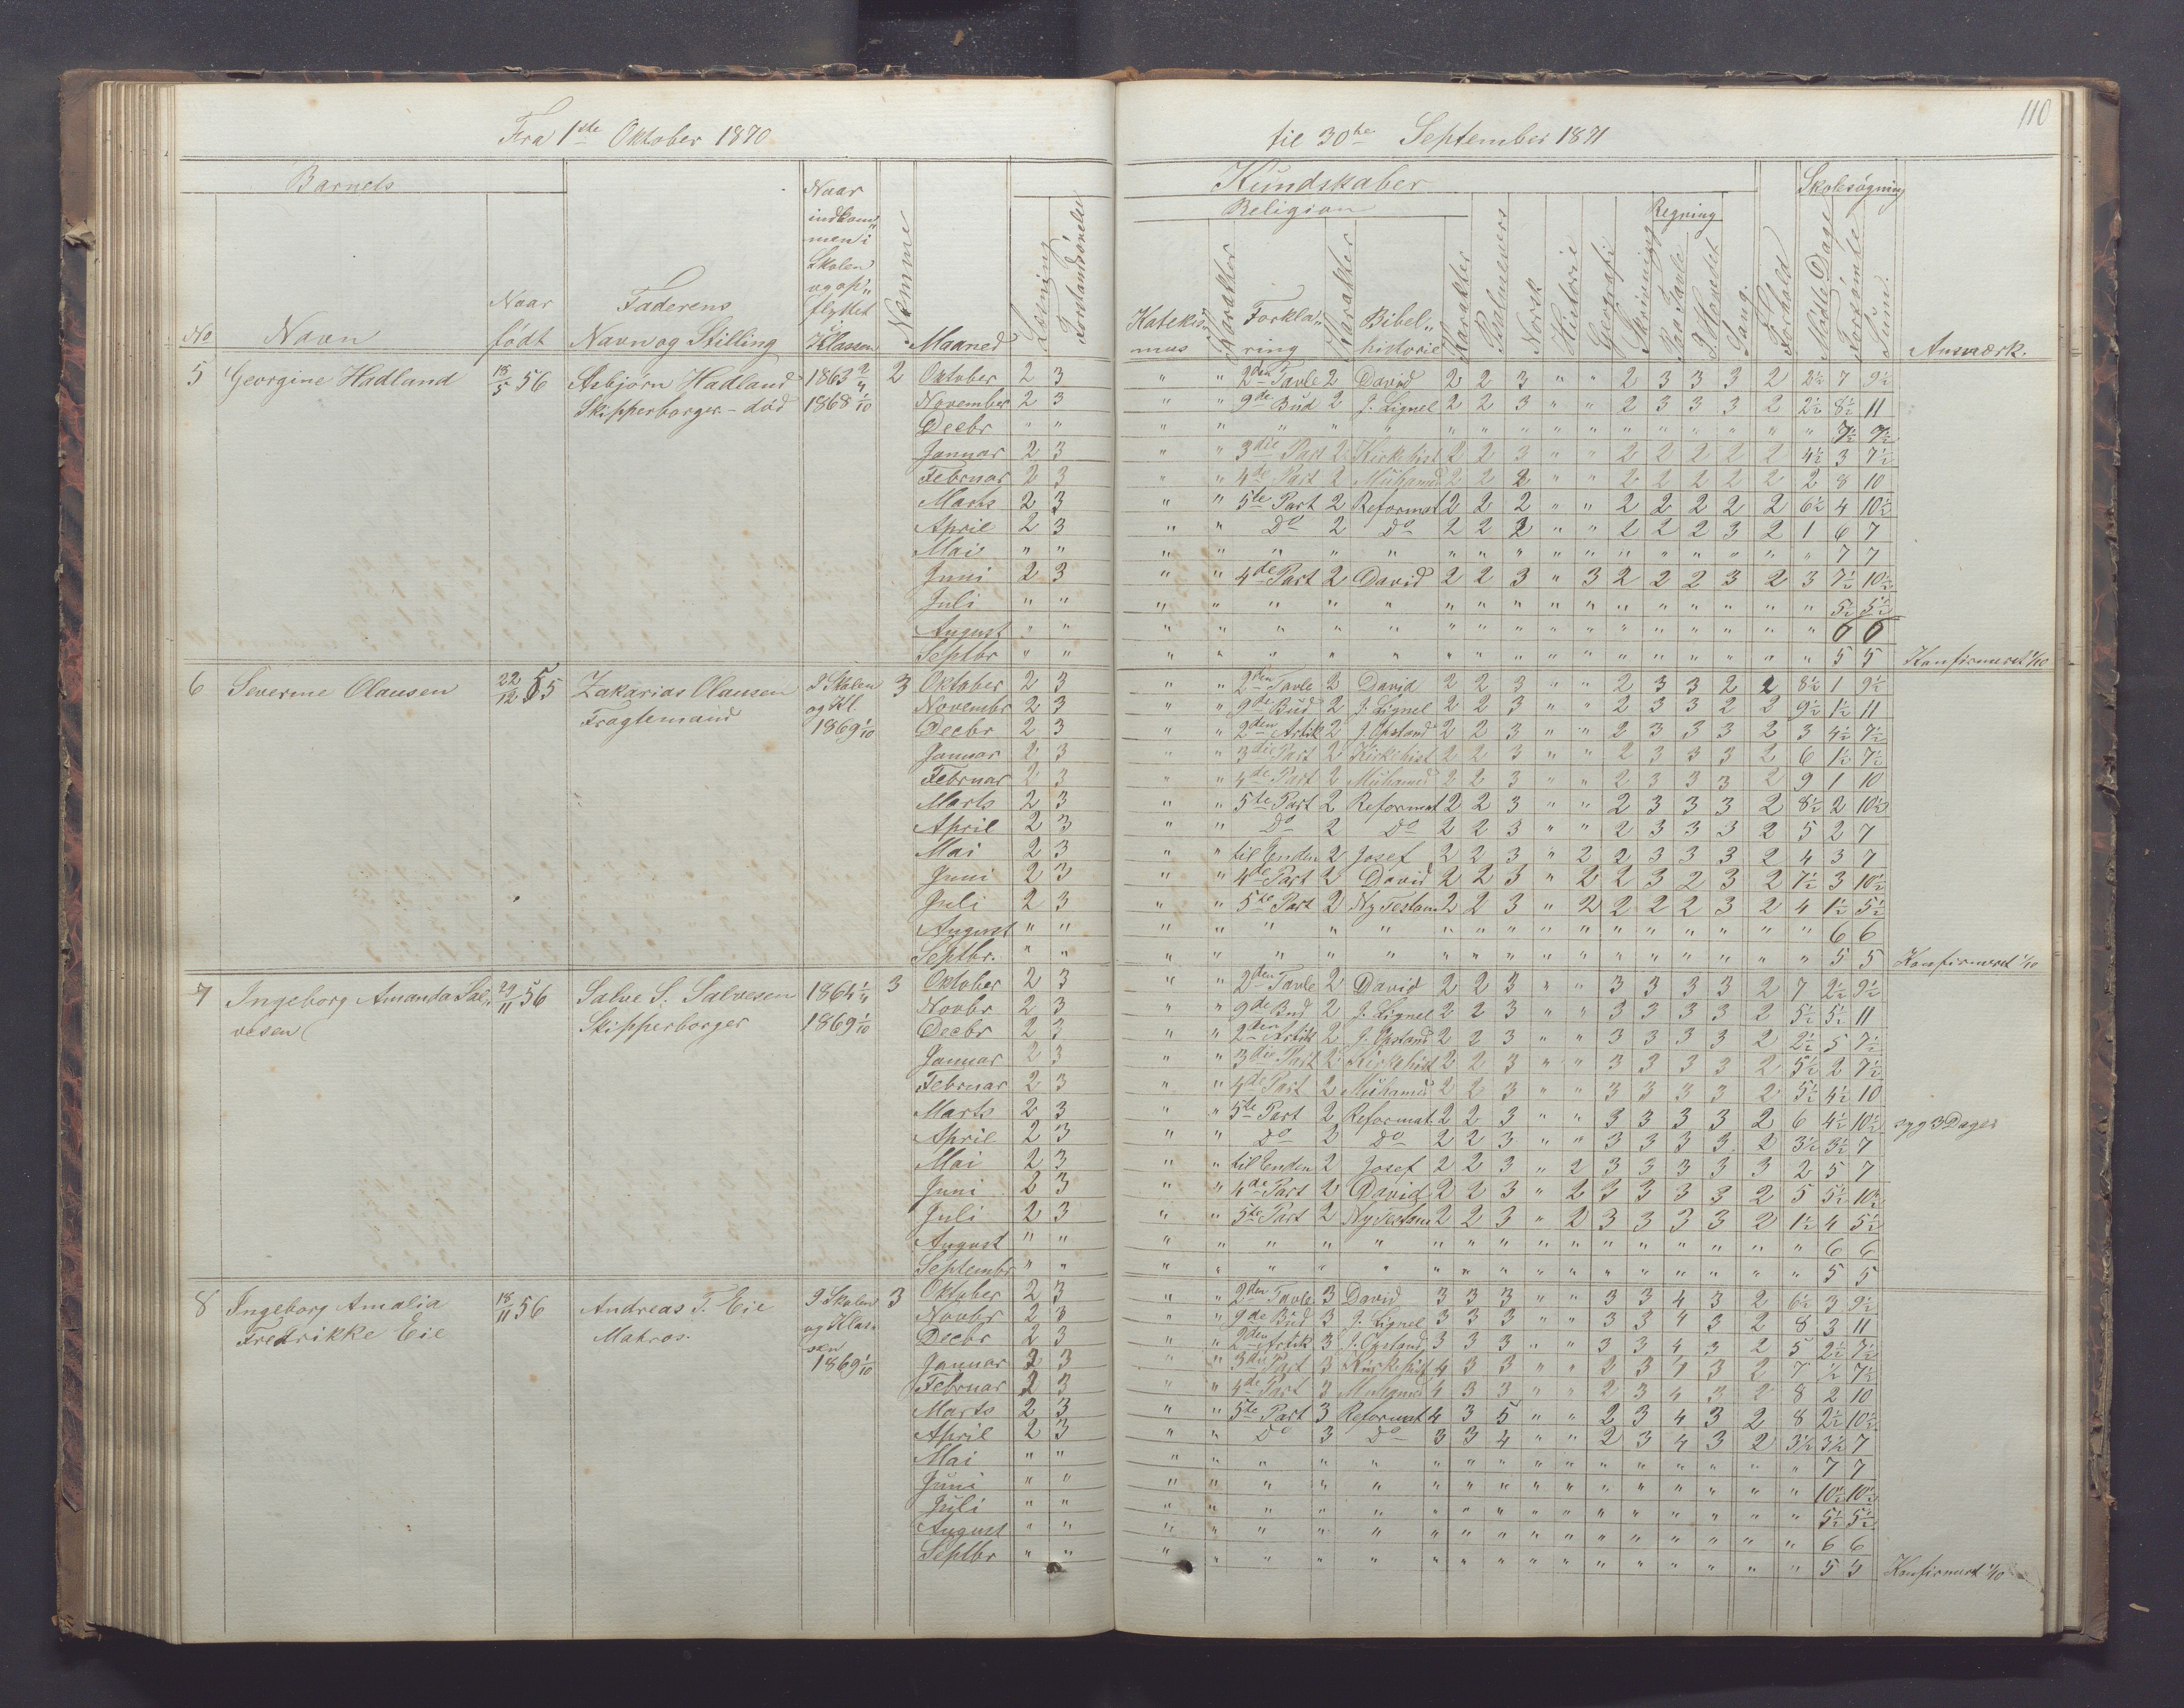 110
Fra 1ste Oktober 1870 til 30te September 1871
Barnets
No
Navn
Naar født
Faderens Navn og Stilling
Naar indkommen i Skolen og opflyttet i Klassen
Nemme
Maaned
Læsning
Forstandsøvelse
Kundskaber
Religion
Katekismus
Karakter
Forklaring
Karakter
Bibelhistorie
Karakter
Psalmevers
Norsk
Historie
Geografi
Skrivning
Regning
Paa Tavle
I Hovedet
Sang
Forhold
Skolesøgning
Mødte Dage
Forsømte
Sum
Anmærk.
5 Georgine Hadland 18/5 56 Asbjørn Hadland 1863 2 Oktober 2 3 " " 2den Tavle 2 David 2 2 3 " " 2 3 3 3 2 2½ 7 9½
Skipperborger - død 1868 1/10 November 2 3 " " 9de Bud 2 J. Lignel 2 2 3 " " 2 3 3 3 2 2½ 8½ 11
Decbr " " " " " " " " " " " " " " " " " " 7½ 7½
Januar 2 3 " " 3die Part 2 Kirkehist 2 2 3 " " 2 2 2 2 2 4½ 3 7½
Februar 2 3 " " 4de Part 2 Muhamed 2 2 2 " " 2 2 2 2 2 2 8 10
Marts 2 3 " " 5te Part 2 Reformat 2 2 2 " " 2 2 2 2 2 6½ 4 10½
April 2 3 " " Do 2 Do 2 2 2 " " 2 2 2 3 2 1 6 7
Mai " " " " " " " " " " " " " " " " " " 7 7
Juni 2 3 " " 4de Part 2 David 2 2 3 " 3 2 2 2 3 2 3 7½ 10½
Juli " " " " " " " " " " " " " " " " " " 5½ 5½
August " " " " " " " " " " " " " " " " " " 6 6
Septbr " " " " " " " " " " " " " " " " " " 5 5 Konfirmeret 1/10
6 Severine Olausen 22/12 55 Zakarias Olausen I Skolen 3 Oktober 2 3 " " 2den Tavle 2 David 2 2 3 " " 2 3 3 2 2 8½ 1 9½
Fragtemand og Kl. Novembr 2 3 " " 9de Bud 2 J. Lignel 2 2 3 " " 2 3 3 2 2 9½ 1½ 11
1869 1/10 Decbr 2 3 " " 2den Artik 2 J. Opstand 2 2 3 " " 2 3 3 3 2 3 4½ 7½
Januar 2 3 " " 3die Part 2 Kirkehist 2 2 3 " " 2 3 3 3 2 6 1½ 7½
Februar 2 3 " " 4de Part 2 Muhamed 2 2 3 " " 2 3 3 3 2 9 1 10
Marts 2 3 " " 5te Part 2 Reformat 2 2 3 " " 2 3 3 3 2 8½ 2 10½
April 2 3 " " Do 2 Do 2 2 3 " " 2 3 3 3 2 5 2 7
Mai 2 3 " " til Enden 2 Josef 2 2 3 " 2 2 3 3 3 2 4 3 7
Juni 2 3 " " 4de Part 2 David 2 2 3 " 2 2 3 2 3 2 7½ 3 10½
Juli 2 3 " " 5te Part 2 Ny Testam 2 2 3 " 2 2 2 2 3 2 4 1½ 5½
August " " " " " " " " " " " " " " " " " " 6 6
Septbr. " " " " " " " " " " " " " " " " " " 5 5 Konfirmeret 1/10
7 Ingeborg Amanda Sal- 29/11 56 Salve S. Salvesen 1864 3 Oktober 2 3 " " 2den Tavle 2 David 2 2 3 " " 3 3 3 3 2 7 2½ 9½
vesen Skipperborger 1869 1/10 Novbr 2 3 " " 9de Bud 2 J. Lignel 2 2 3 " " 3 3 3 3 2 5½ 5½ 11
Decbr 2 3 " " 2den Artik 2 J. Opstand 2 2 3 " " 3 3 3 3 2 2½ 5 7½
Januar 2 3 " " 3die Part 2 Kirkehist 2 2 3 " " 3 3 3 3 2 5½ 2 7½
Februar 2 3 " " 4de Part 2 Muhamed 2 2 3 " " 3 3 3 3 2 5½ 4½ 10
Marts 2 3 " " 5te Part 2 Reformat. 2 2 3 " " 3 3 3 3 2 6 4½ 10½ syg 3 Dage
April 2 3 " " Do 2 Do 2 2 3 " " 3 3 3 3 2 3½ 3½ 7
Mai 2 3 " " til Enden 2 Josef 2 2 3 " 2 3 3 3 3 3 2 5 7
Juni 2 3 " " 4de Part 2 David 2 2 3 " 2 3 3 3 3 2 5 5½ 10½
Juli 2 3 " " 5te Part 2 Ny Testam 2 2 3 " 2 3 3 3 3 2 1½ 4 5½
August " " " " " " " " " " " " " " " " " " 6 6
Septembr " " " " " " " " " " " " " " " " " " 5 5
8 Ingeborg Amalia 18/11 56 Andreas T. Eie I Skolen 3 Oktober 2 3 " " 2den Tavle 3 David 3 3 3 " " 3 3 4 3 2 6½ 3 9½
Fredrikke Eie Matros. og Klas- Novbr 2 3 " " 9de Bud 3 J. Lignel 3 3 3 " " 3 3 4 3 2 8 3 11
sen Decbr 2 3 " " 2den Artik 3 J. Opstand 3 3 3 " " 3 3 4 3 2 5 2½ 7½
1869 1/10 Januar 2 3 " " 3die Part 3 Kirkehist 4 3 3 " " 2 3 4 3 2 7 ½ 7½
Februar 2 3 " " 4de Part 3 Muhamed 4 3 3 " " 2 3 4 3 2 8 2 10
Marts 2 3 " " 5te Part 3 Reformat 4 3 5 " " 2 3 4 3 2 8 2½ 10½
April 2 3 " " Do 3 Do 3 3 4 " " 2 3 4 3 2 3½ 3½ 7
Mai " " " " " " " " " " " " " " " " " " 7 7
Juni " " " " " " " " " " " " " " " " " " 10½ 10½
Juli " " " " " " " " " " " " " " " " " " 5½ 5½
August " " " " " " " " " " " " " " " " " " 6 6
Septbr " " " " " " " " " " " " " " " " " " 5 5 Konfirmert 1/10